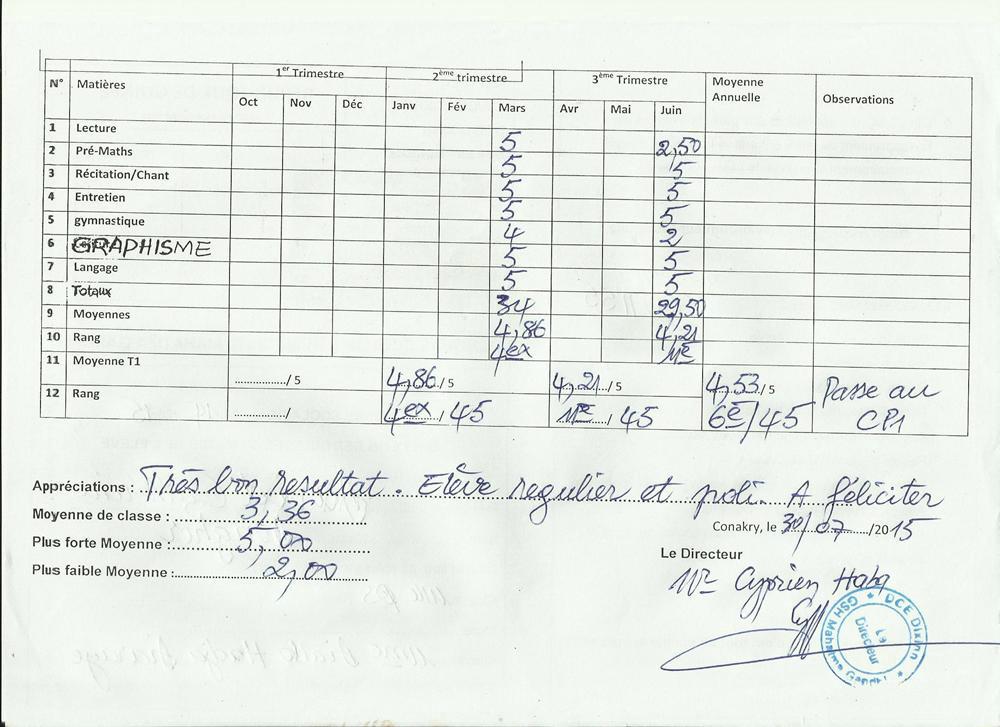 N° Matières 1er Trimestre 2ème trimestre 3ème Trimestre Moyenne Annuelle Observations
Oct Nov Déc Janv Fév Mars Avr Mai Juin
1 Lecture 5 2,50
2 Pré-Maths 5 5
3 Récitation/Chant 5 5
4 Entretien 5 5
5 gymnastique 4 2
6 GRAPHISME 5 5
7 Langage 5 5
8 Totaux 34 29,50
9 Moyennes 4,86 4,21
10 Rang 4ex 11e
11 Moyenne T1 ............../ 5 4,86/5 4,21/5 4,53/5 Passe au
12 Rang ............../ 4ex/45 11e/45 6e/45 CP1
Appréciations : Très bon resultat. Elève regulier et poli. A féliciter
Moyenne de classe : 3,36
Conakry, le 30/07/2015
Plus forte Moyenne : 5,00
Le Directeur
Plus faible Moyenne : 2,00
Mr Cyprien Haba
DCE Dixinn
GSH Mahatma Gandhi
Le Directeur